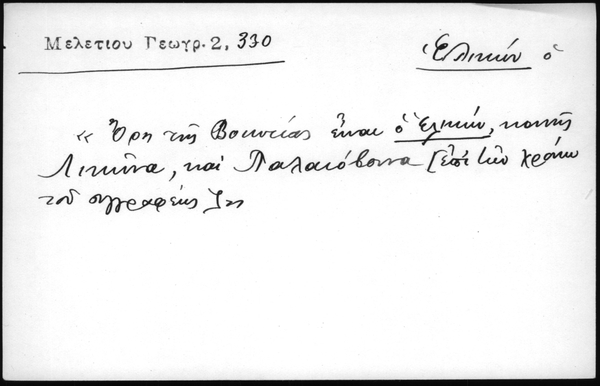 Μελετιου Γεωγρ. 2, 330
Ἑλικών ὁ
« Ὄρη τῆς Βοιωτίας εἶναι ὁ Ἑλικών, κοινῶς
Λικῶνα, καὶ Παλαιόβουνα [ἐπὶ τῶν χρόνων
τοῦ συγγραφέως]»